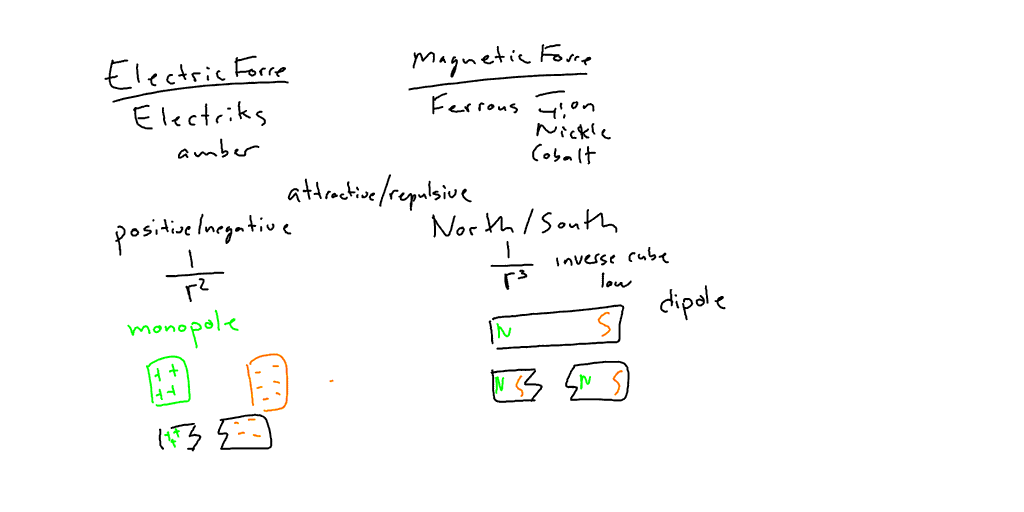 Electric Force
Magnetic Force
Electriks
Ferrous Iron
Nickle
amber
Cobalt
attractive/repulsive
positive/negative
North/South
1
r2
1
r3
inverse cube
law
monopole
dipole
N S
++
++
- -
- -
- -
N S
N S
+++
- -
- -